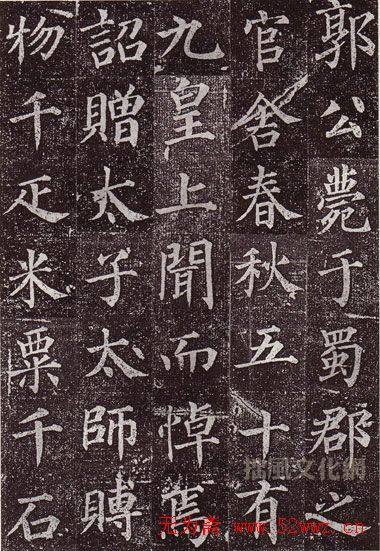 郭公薨于蜀郡之
官舍春秋五十有
九皇上聞而悼焉
詔贈太子太師賻
物千疋米粟千石
拙風文化網
www.52wwz.cn